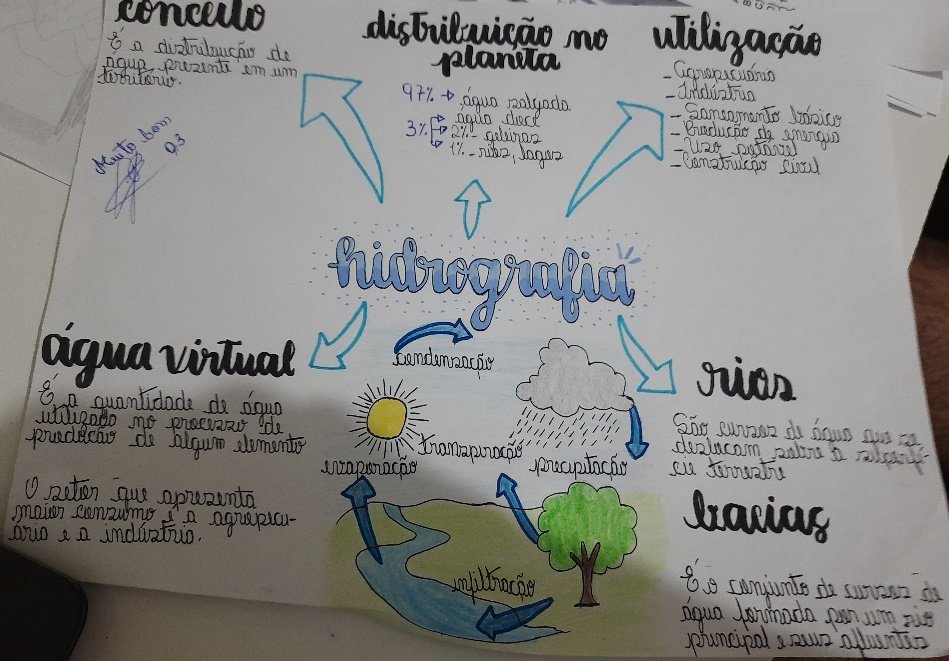 conceito
É a distribuição de
água presente em um
território.
Muito bom
0,3
distribuição no
planeta
97% → água salgada
água doce
3% 2% - geleiras
1% - rios, lagos
utilização
- Agropecuária
- Indústria
- Saneamento básico
- Produção de energia
- Uso potável
- Construção civil
hidrografia
água virtual
É a quantidade de água
utilizado no processo de
produção de algum elemento
O setor que apresenta
maior consumo é a agropecu-
ário e a indústria.
condensação
transpiração
evaporação
precipitação
infiltração
rios
São cursos de água que se
deslocam sobre a superfí-
cie terrestre
bacias
É o conjunto de cursos de
água formada por um rio
principal e seus afluentes